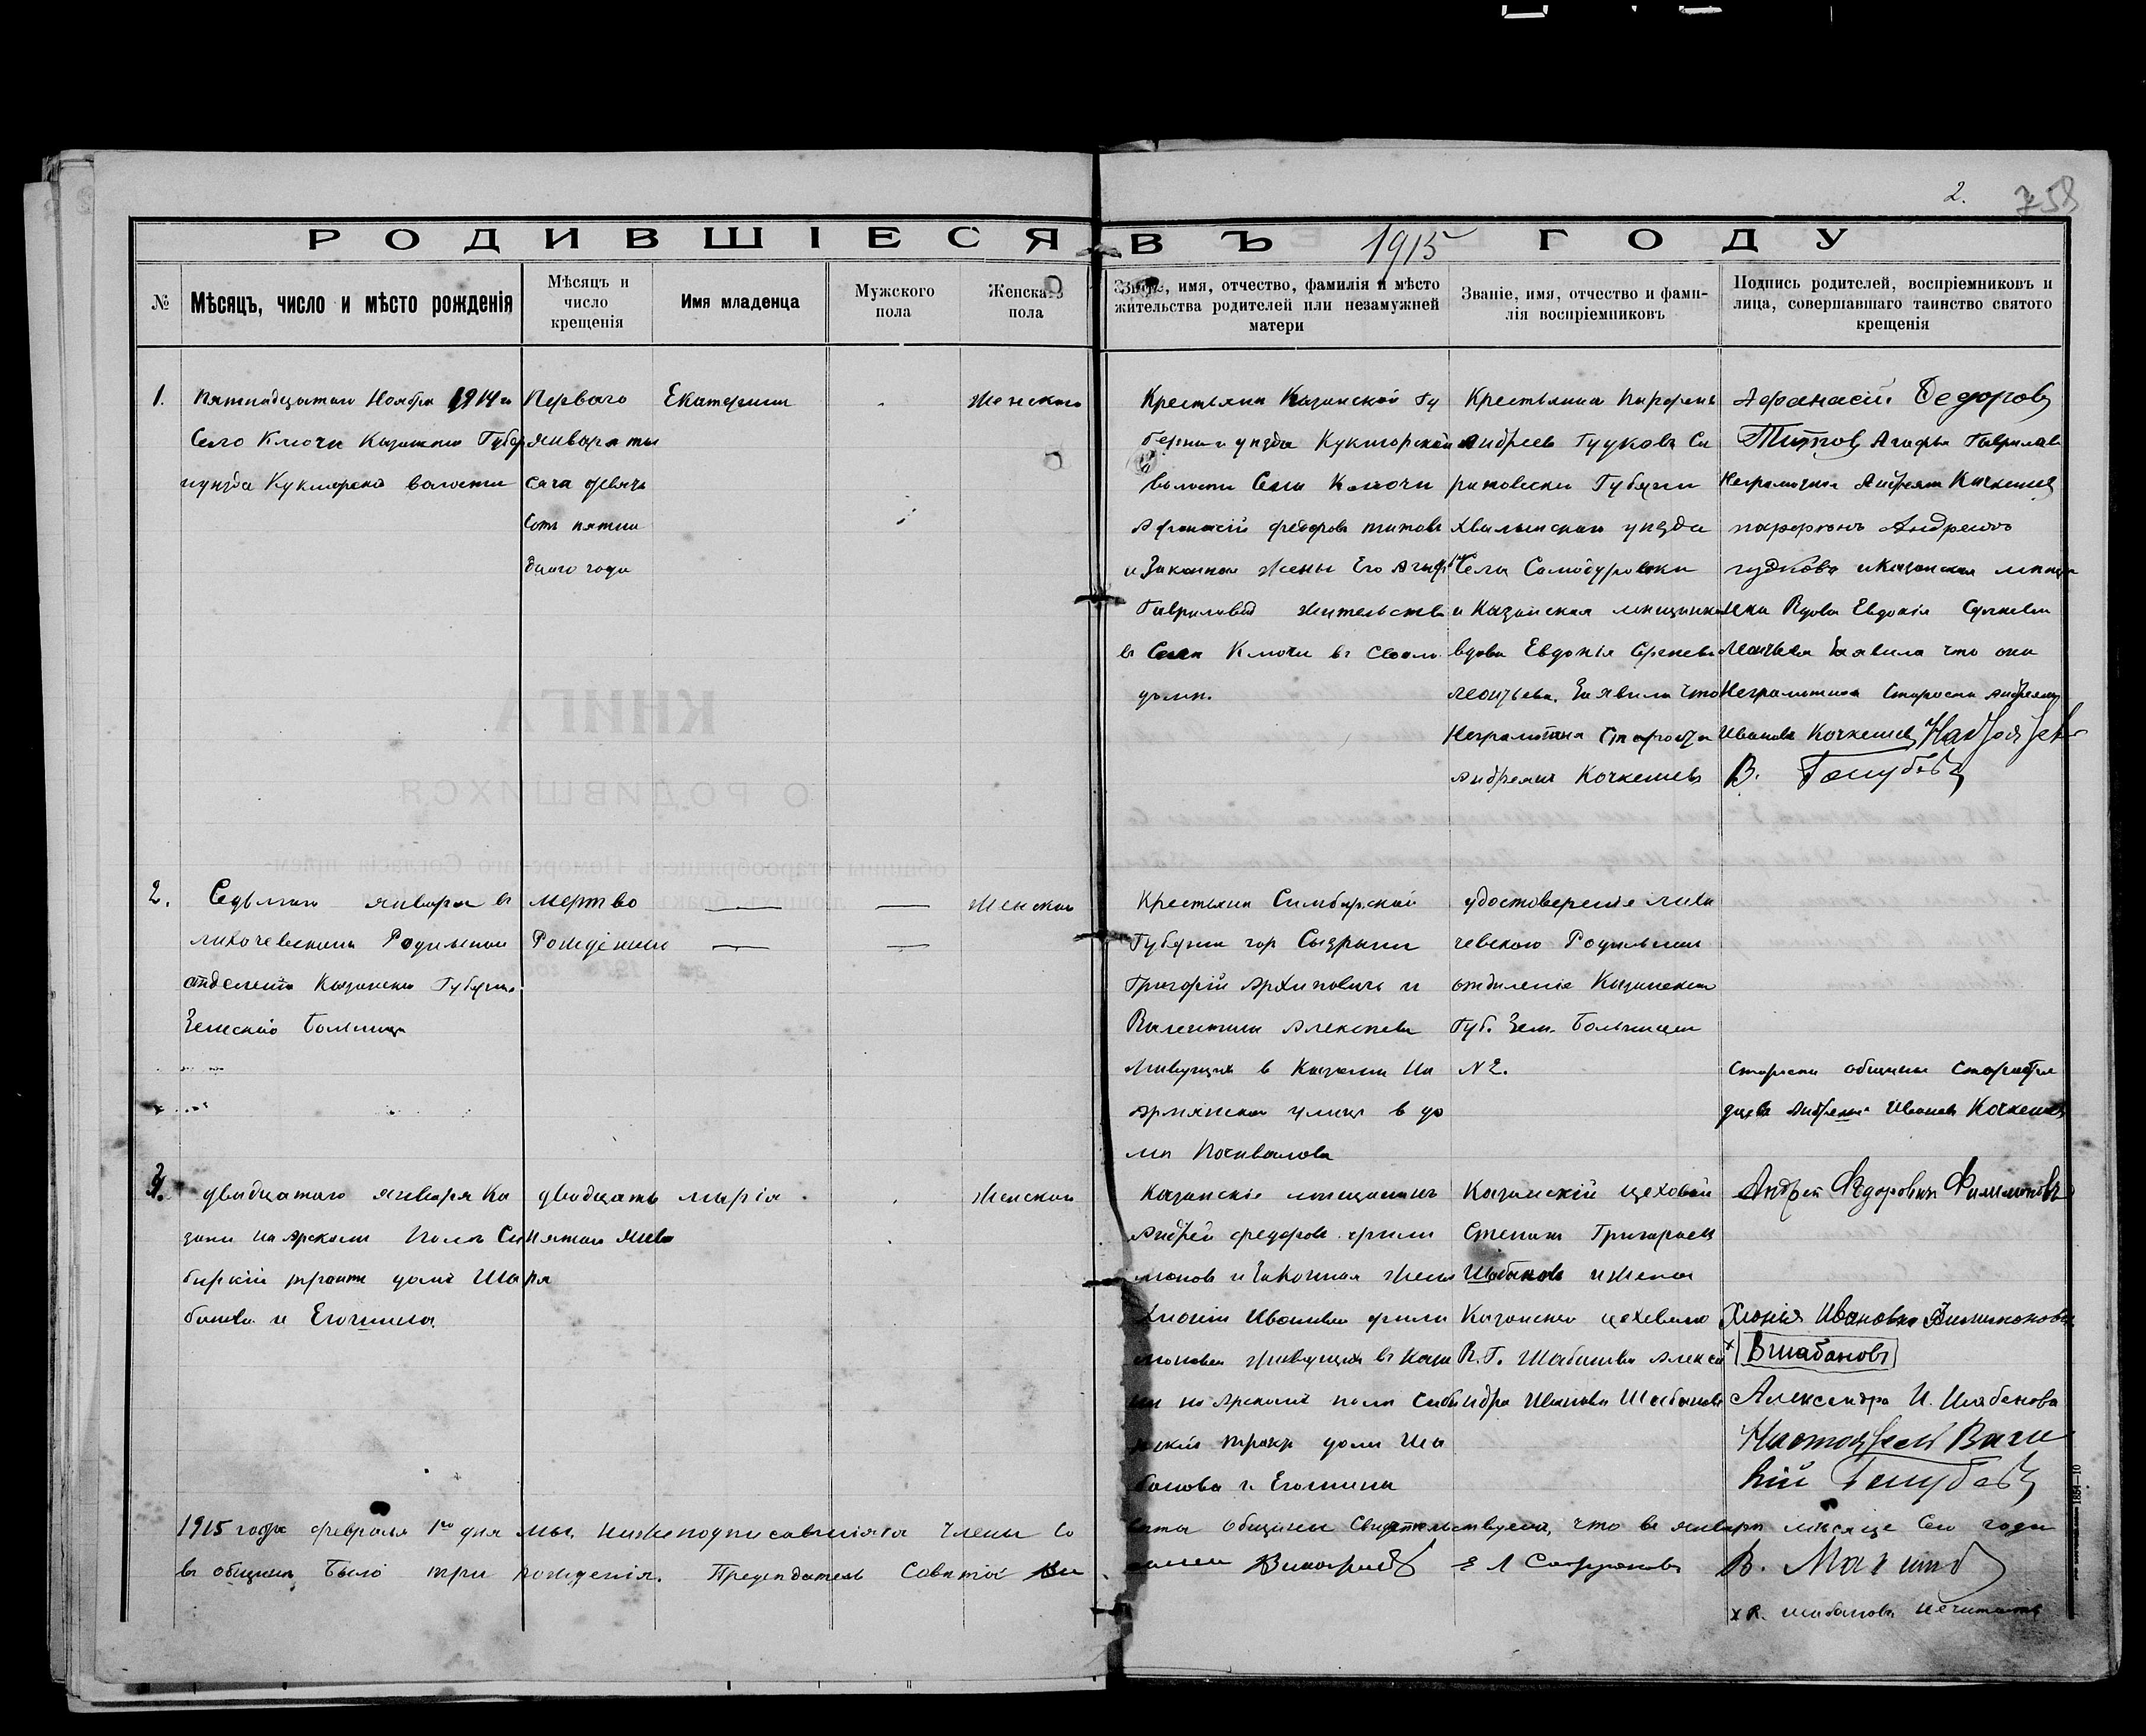 2.
758
РОДИВШІЕСЯ ВЪ 1915 ГОДУ
№
Мѣсяцъ, число и мѣсто рожденія
Мѣсяцъ и
число
крещенія
Имя младенца
Мужского
пола
Женска
пола
имя, отчество, фамилія и мѣсто
жительства родителей или незамужней
матери
Званіе, имя, отчество и фами-
лія воспріемниковъ
Подпись родителей, воспріемниковъ и
лица, совершавшаго таинство святого
крещенія
1.
пятнадцатаго Ноября 1914 г
Село Ключи Казанской Губер
уѣзда Кукморской волости
Перваго
января мы
сяча девять
сотъ пятна
дцаго года
Екатерина
Женского
Крестьяна Казанской Гу
берніи уѣзда Кукморской
волости Села Ключи
Афонасій федоровъ титовъ
и Законная жены Его Агафь
Гавриловой жительство
въ Селѣ Ключи въ своемъ
домѣ.
Крестьянина Парфенъ
Андреевъ Гудковъ Са
ратовской Губерніи
Хвалынскаго уѣзда
Села Самодуровки
и Казанская мещанка
вдова Евдокія Сергеева
Леонтьева. Заявила что
Неграмотна Староста
Андреянъ Кочкешевъ
Афанасій Федоровъ
Титовъ Агафья Гаврилова
Неграмотная Андреянъ Кочкешевъ
парфенъ Андреевъ
гудковъ и Казанская меща
нка Вдова Евдокія Сергеева
Леонтьева Заявила что она
Неграмотная Староста Андреянъ
Ивановъ Кочкешевъ
В. Голубевъ
2.
Седьмого января въ
лихачевскомъ Родильномъ
отделеніи Казанской Губерн.
Земской Больницы
мертво
Рожденный
Женской
Крестьяна Симбирской
Губерніи гор Сызрани
Григорій Архиповичъ и
Валентина Алексѣева
Живущихъ в Казани На
Армянской улицѣ в до
мѣ Почивалова
удостовереніе лиха
чевского Родильнаго
отдиленіе Казанской
Губ. Зем. Больницы
№ 2.
Староста общины старообря
дцевъ Андреянъ Ивановъ Кочкешевъ
3.
двадцатаго января Ка
зани на Арскомъ Полѣ Си
бирскій трактъ домъ Ша
банова и Егошина
двадцать
пятаго янва
ря
марія
Женской
Казанскіе мещанинъ
Андрей федоровъ фили
моновъ и Законная жена
Хионія Иванова фили
монова живущихъ въ Каза
ни на Арскомъ полѣ Сиби
рскій трактъ домъ Ша
банова и Егошина
Казанскій цеховой
Степанъ Григорьевъ
Шабановъ и жена
Казанскаго цеховаго
В. Г. Шабанова Алекса
ндра Иванова Шабанова
Андрей Федоровичъ Филимоновъ
Хіонія Ивановна Филимонова
x В Шабановъ
Александра И. Шабанова
Наставникъ Васи
лій Голубевъ
1915 года февраля 1го дня мы, нижеподписавшіяся Члены Со
вѣта общины Свидетельствуемъ, что въ январѣ мѣсяце Сего года
въ общинѣ Было три рожденія. Председатель Совѣта
Е Л Сафроновъ
x В. Шабановъ нечитать